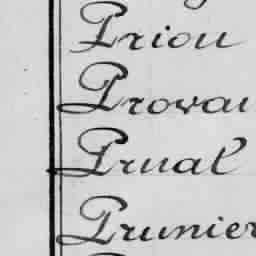 Priou
Provau
Prual
Prunier